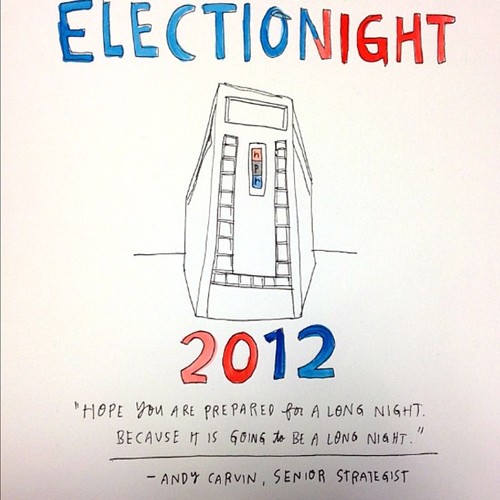 ELECTIONIGHT
n
p
r
2012
"HOPE YOU ARE PREPARED for A LONG NIGHT.
BECAUSE IT IS GOING to BE A LONG NIGHT."
- ANDY CARVIN, SENIOR STRATEGIST